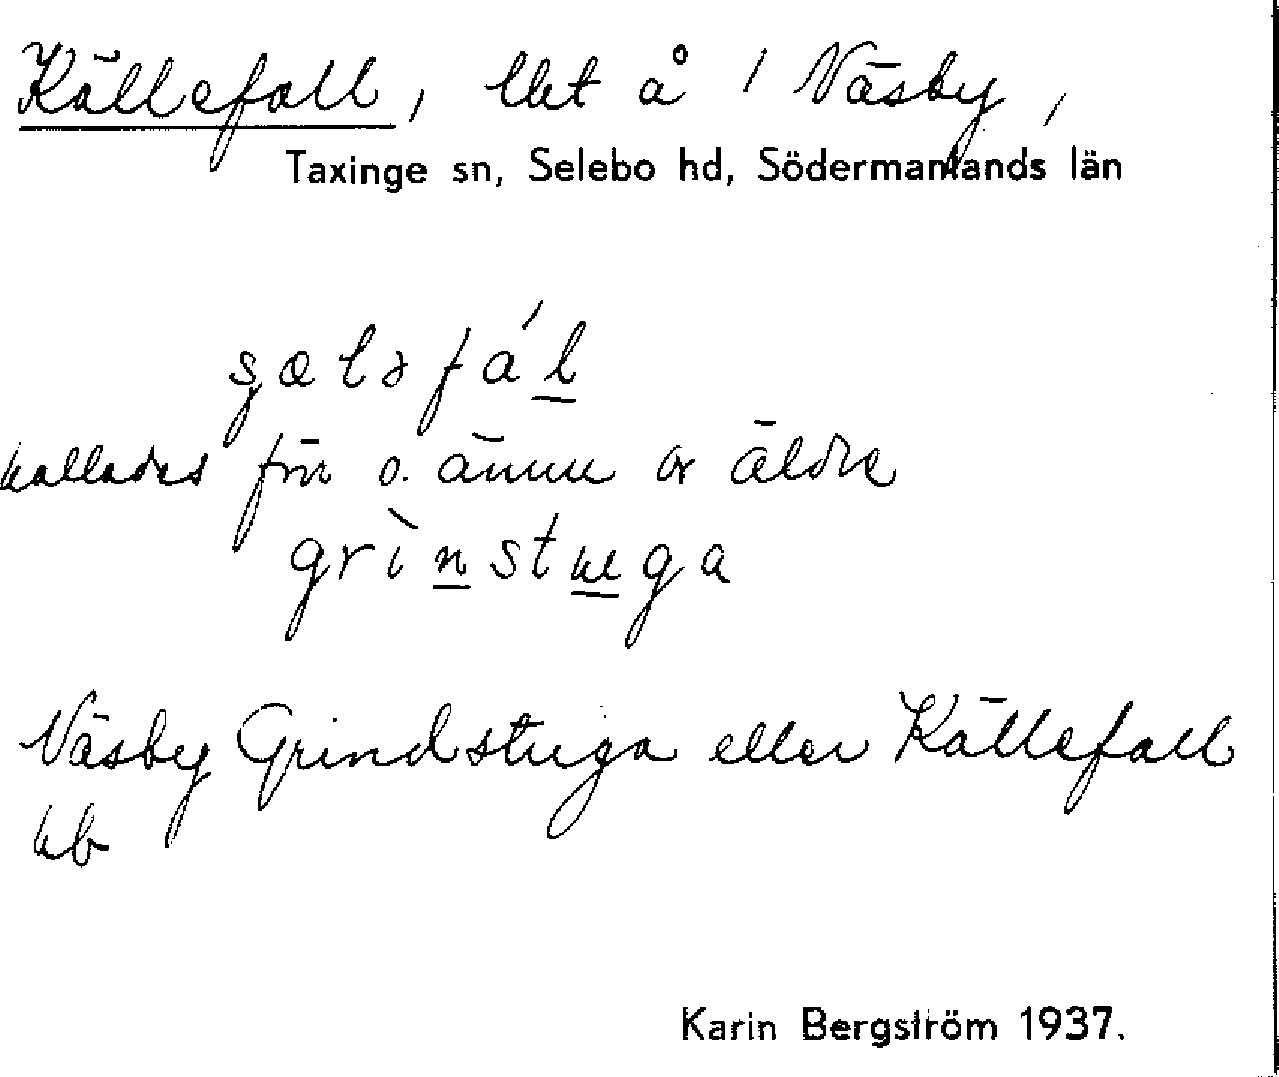 Källefall, lht å / Näsby,
Taxinge sn, Selebo hd, Södermanlands län
kallades förr o. ännu av äldre
grìnstuga
Näsby Grindstuga eller Källefall
kb
Karin Bergström 1937.